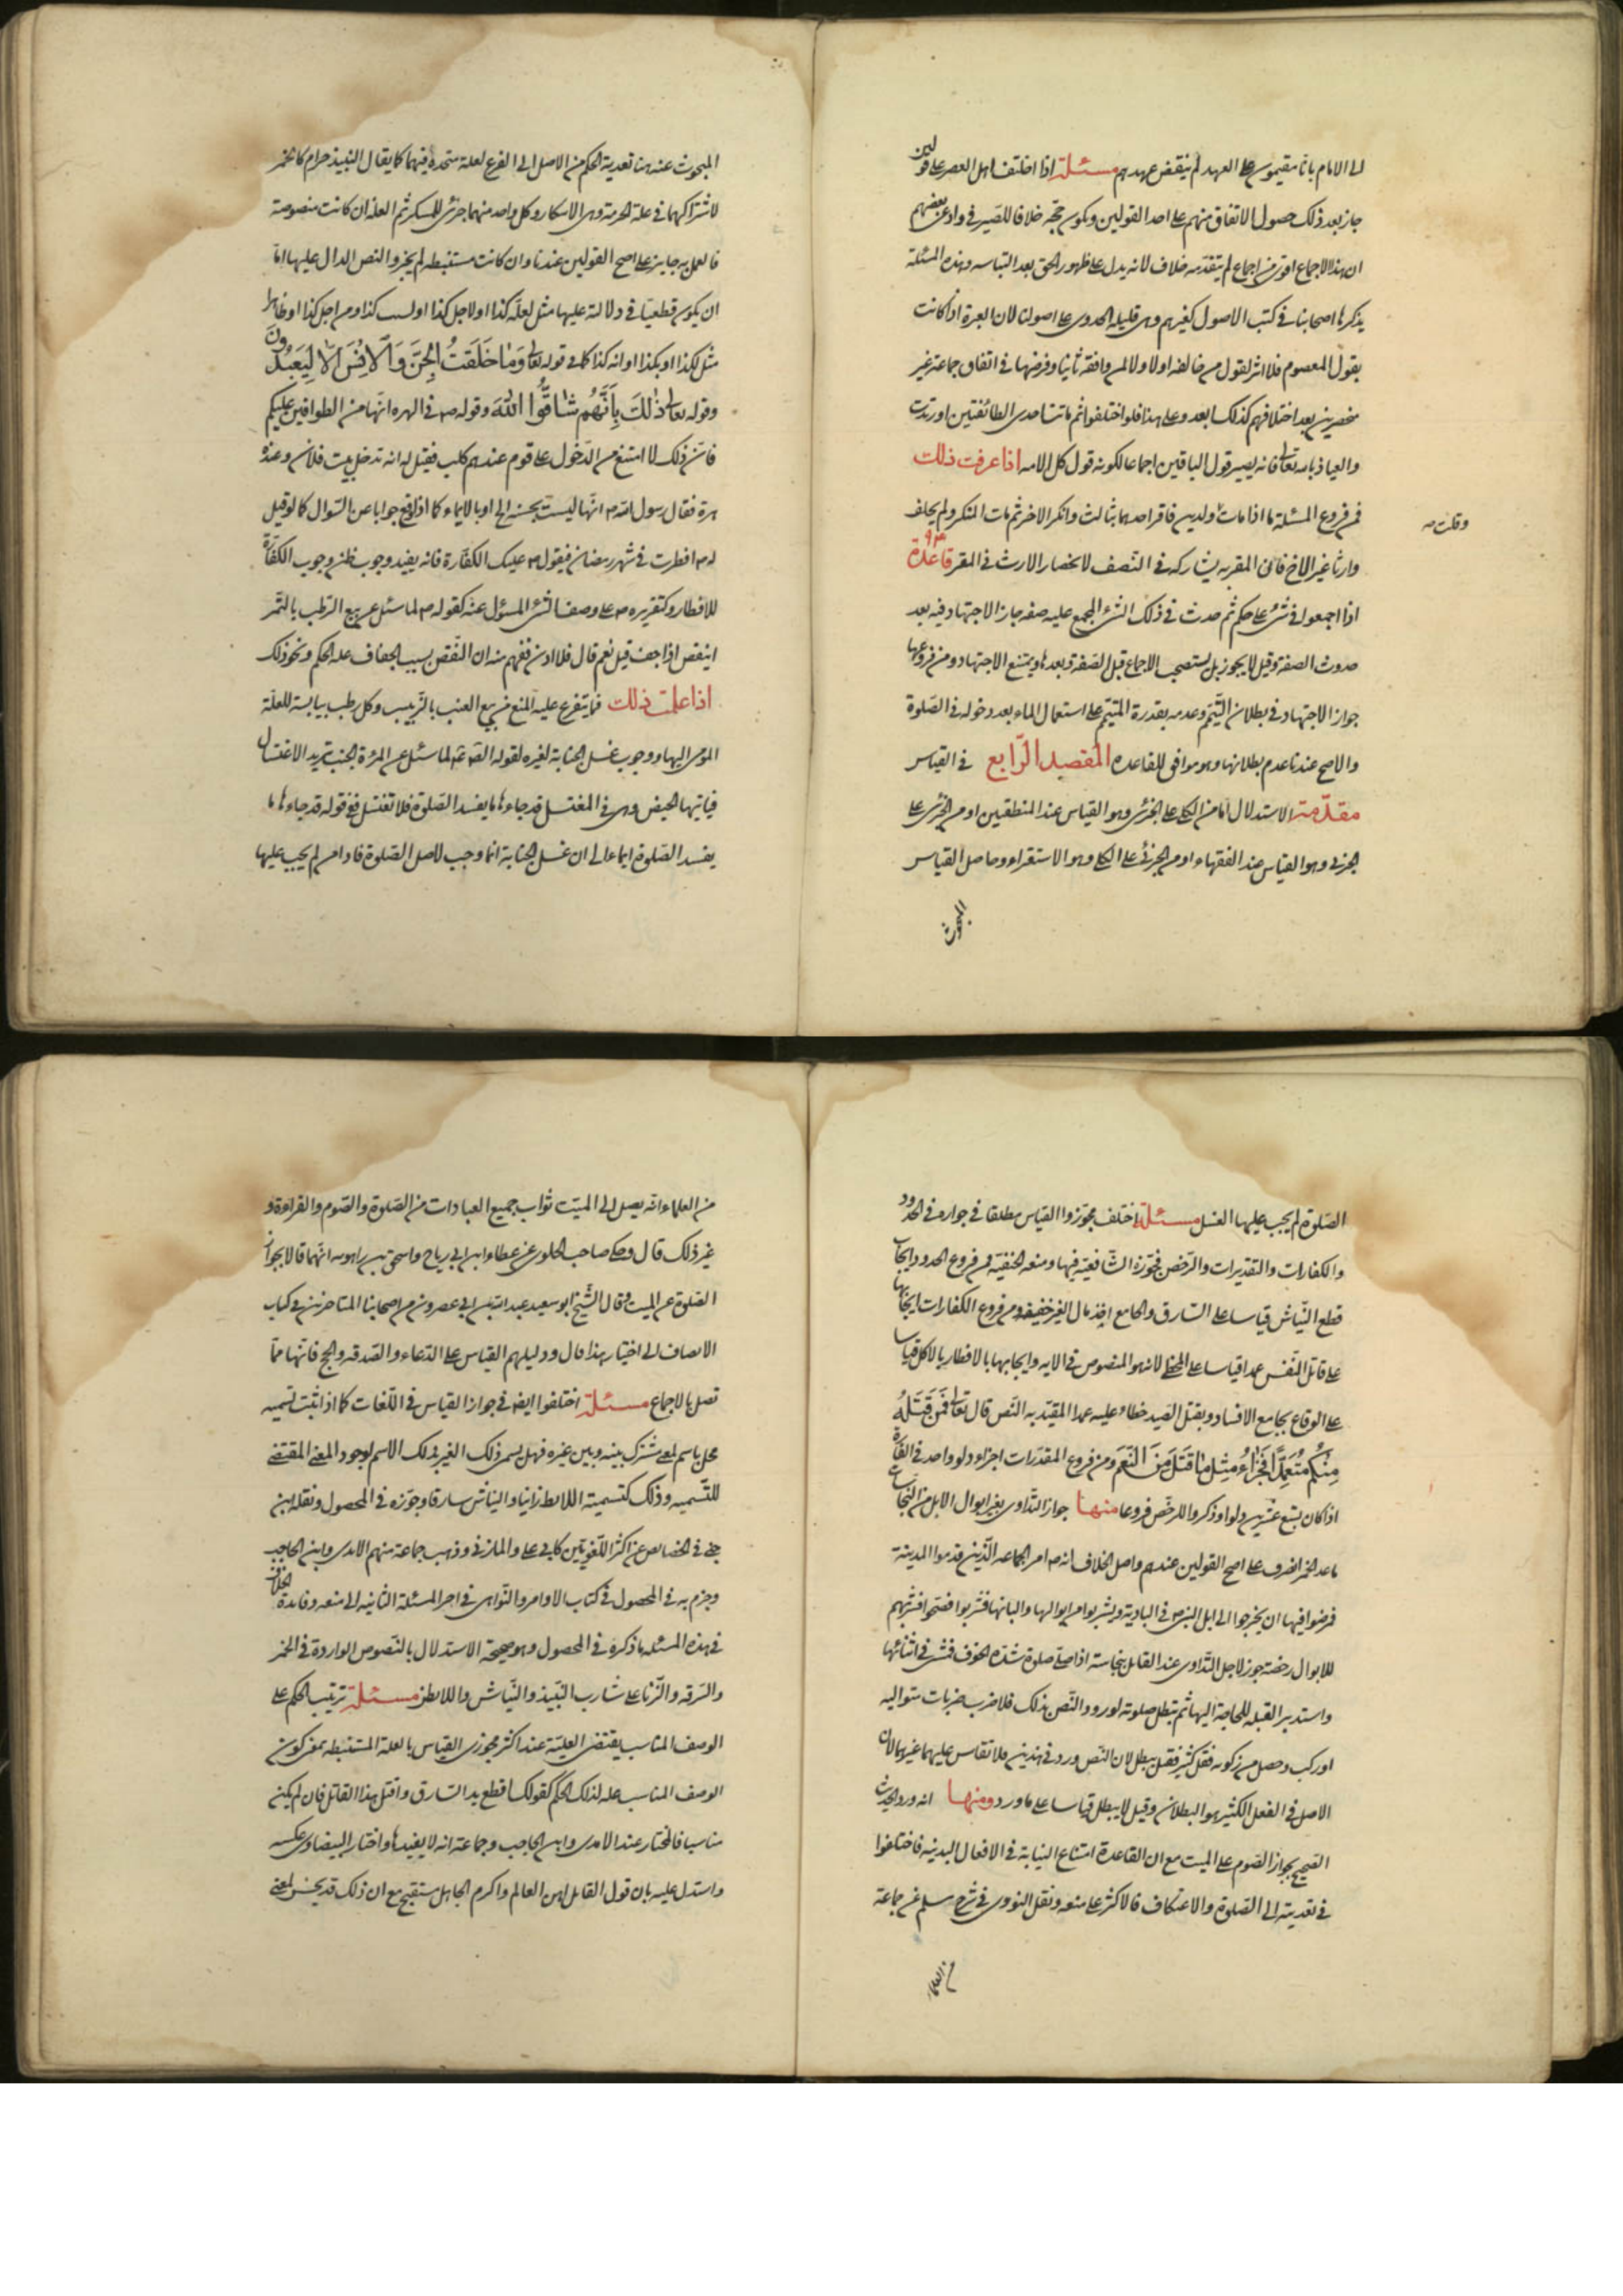 الى الامام بانا مقيمون على العهد لم ينقض عهدهم مسئلة اذا اختلف اهل العصر على قولين
جاز بعد ذلك حصول الاتفاق منهم على احد القولين ويكون حجة خلافا للصيرفي وادعى بعضهم
ان هذا الاجماع اقوى من اجماع لم يتقدمه خلاف لانه يدل على ظهور الحق بعد التباسه وهذه المسئلة
يذكرها اصحابنا في كتب الاصول كغيرهم وهى قليلة الجدوى على اصولنا لان العبرة اذا كانت
بقول المعصوم فلا اثر لقول من خالفه اولا ولا لمن وافقه ثانيا وفرضها في اتفاق جماعة غير
منحصرين بعد اختلافهم كذلك بعد وعلى هذا فلو اختلفوا ثم ماتت احدى الطائفتين او ارتدت
والعياذ بالله تعالى فانه يصير قول الباقين اجماعا لكونه قول كل الامه اذا عرفت ذلك
فمن فروع المسئلة ما اذا مات وقلت ولدين فاقر احدهما بثالث وانكر الاخر ثم مات المنكر ولم يخلف
وارثا غير الاخ فان المقر به يشاركه في النصف لانحصار الارث في المقر قاعدة ٩٣
اذا اجمعوا في شئ على حكم ثم حدث في ذلك الشئ المجمع عليه صفه جاز الاجتهاد فيه بعد
حدوث الصفة وقيل لا يجوز بل يستصحب الاجماع قبل الصفة وبعدها ويمتنع الاجتهاد ومن فروعها
جواز الاجتهاد في بطلان التيمم وعدمه بقدرة المتيمم على استعمال الماء بعد دخوله في الصلوة
والاصح عندنا عدم بطلانها وهو موافق للقاعده المقصد الرابع في القياس
مقدمة الاستدلال اما من الكلى على الجزئى وهو القياس عند المنطقيين او من الجزئى على
الجزئى وهو القياس عند الفقهاء او من الجزئى على الكلى وهو الاستقراء وحاصل القياس
المبحوث
المبحوث عنه هنا تعدية الحكم من الاصل الى الفرع لعلة متحدة فيهما كما يقال النبيذ حرام كالخمر
لاشتراكهما في علة الحرمة وهى الاسكار وكل واحد منهما جزئى للمسكر ثم العلة ان كانت منصوصة
فالعمل به جايز على اصح القولين عندنا وان كانت مستنبطه لم يجز والنص الدال عليها اما
ان يكون قطعيا في دلالته عليها مثل لعلة كذا او لاجل كذا او لسبب كذا او من اجل كذا او ظاهرا
مثل لكذا او بكذا او انه كذا كما في قوله تعالى وَمَا خَلَقْتُ الْجِنَّ وَالْاِنْسَ اِلَّا لِيَعْبُدُونَ
وقوله تعالى ذٰلِكَ بِاَنَّهُمْ شَاقُّوا اللهَ وقوله ص في الهره انها من الطوافين عليكم
فان ذلك لما امتنع من الدخول على قوم عندهم كلب فقيل له انه تدخل بيت فلان وعنده
هرة فقال رسول الله ص انها ليست بنجسة الخ او بالايماء كما اذا وقع جوابا عن السؤال كما لو قيل
له ص افطرت في شهر رمضان فيقول ص عليك الكفارة فانه يفيد وجوب ظن وجوب الكفارة
للافطار وكتقريره ص على وصف الشئ المسئول عنه كقوله ص لما سئل عن بيع الرطب بالتمر
اينقص اذا جف قيل نعم قال فلا اذن ففهم منه ان النقص بسبب الجفاف علة الحكم ونحو ذلك
اذا علمت ذلك فما يتفرع عليه المنع من بيع العنب بالزبيب وكل رطب بيابسه للعلة
المومى اليها ووجوب غسل الجنابة لغيره لقوله الص ع لما سئل عن المرئة الجنب تريد الاغتسال
فياتيها الحيض وهى في المغتسل قد جاءها ما يفسد الصلوة فلا تغتسل ففى قوله قد جاءها ما
يفسد الصلوة ايماء الى ان غسل الجنابة انما وجب لاصل الصلوة فاذا من لم يجب عليها
الصلوة لم يجب عليها الغسل مسئلة اختلف مجوزوا القياس مطلقا في جوازه في الحدود
والكفارات والتقديرات والرخص فجوزه الشافعية فيها ومنعه الحنفية فمن فروع الحدود ايجاب
قطع النباش قياسا على السارق والجامع اخذ مال الغير خفيه ومن فروع الكفارات ايجابها
على قاتل النفس عمدا قياسا على المخطئ لانه هو المنصوص في الايه وايجابها بالافطار بالاكل قياسا
على الوقاع بجامع الافساد وبقتل الصيد خطاء عليه عمدا المقيد به النص قال تعالى فَمَنْ قَتَلَهُ
مِنْكُمْ مُتَعَمِّدًا فَجَزَاءٌ مِثْلُ مَا قَتَلَ مِنَ النَّعَمِ ومن فروع المقدرات اجزاء دلو واحد في الفارة
اذا كان يسع عشرين دلوا وذكروا للرخص فروعا منها جواز التداوى بغير ابوال الابل من النجاسات
ما عد الخمر الصرف على اصح القولين عندهم واصل الخلاف انه ص امر الجماعه الذين قدموا المدينة
فمرضوا فيها ان يخرجوا الى ابل النبى ص في البادية ويشربوا من ابوالها والبانها فشربوا فصحوا فشربهم
للابوال رخصة جوز لاجل التداوى عند القايل بنجاسته اذا صلى صلوة شدة الخوف فمشى في اثنائها
واستدبر القبله للحاجة اليها ثم تبطل صلوته لورود النص بذلك فلا ضرب ضربات متواليه
او ركب وحصل من ركوبه فعل كثير فقيل يبطل لان النص ورد في هذين فلا تقاس عليهما غيرهما لان
الاصل في الفعل الكثير هو البطلان وقيل لا يبطل قياسا على ما ورد ومنها انه ورد الحديث
الصحيح بجواز الصوم على الميت مع ان القاعدة امتناع النيابة في الافعال البدنيه فاختلفوا
في تعديته الى الصلوة والاعتكاف فالاكثر على منعه ونقل النووى في شرح مسلم عن جماعة
من العلماء
من العلماء انه يصل الى الميت ثواب جميع العبادات من الصلوة والصوم والقراءة و
غير ذلك قال وحكى صاحب الحاوى عن عطاء ابن ابى رياح واسحق بن راهويه انهما قالا بجواز
الصلوة عن الميت وقال الشيخ ابو سعيد عبد الله بن ابى عصرون من اصحابنا المتاخرين في كتاب
الانصاف الى اختيار هذا قال ودليلهم القياس على الدعاء والصدقه والحج فانها مما
تصل بالاجماع مسئلة اختلفوا ايضا في جواز القياس في اللغات كما اذا ثبت تسميه
محل باسم لمعنى مشترك بينه وبين غيره فهل يسمى ذلك الغير بذلك الاسم لوجود المعنى المقتضى
للتسميه وذلك كتسمية اللايط زانيا والنباش سارقا وجوزه في المحصول ونقله ابن
جنى في الخصايص عن اكثر اللغويين كابى على والمازنى وذهب جماعة منهم الامدى وابن الحاجب
وجزم به في المحصول في كتاب الاوامر والنواهى في اخر المسئلة الثانيه الى منعه وفايدة الخلاف
في هذه المسئله ما ذكره في المحصول وهو صحة الاستدلال بالنصوص الواردة في الخمر
والسرقه والزنا على شارب النبيذ والنباش واللايط مسئلة ترتيب الحكم على
الوصف المناسب يقتضى العلية عند اكثر مجوزى القياس بالعلة المستنبطه بمعنى كون
الوصف المناسب علة لذلك الحكم كقولك اقطع يد السارق واقتل هذا القاتل فان لم يكن
مناسبا فالمختار عند الامدى وابن الحاجب وجماعة انه لا يفيدها واختار البيضاوى عكسه
واستدل عليه بان قول القايل اهن العالم واكرم الجاهل مستقبح مع ان ذلك قد يحسن لمعنى